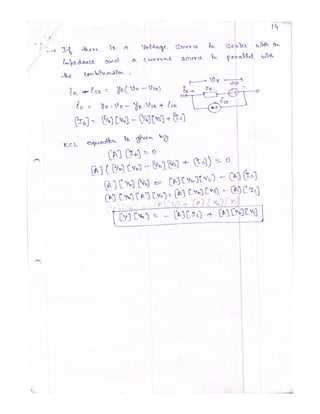 14
→ If there is a Voltage Source in series with an
impedance and a current source in parallel with
the combination.
iK - iSK = yK (VK - VSK)
iK = yK.VK - yK.VSK + iSK
[Ib] = [Yb][Vb] - [Yb][VS] + [IS]
KCL equation is given by
[A] [Ib] = 0
[A] ( [Yb][Vb] - [Yb][VS] + [IS] ) = 0
[A] [Yb] [Vb] = [A][Yb][VS] - [A][IS]
[A] [Yb] [A^T] [Vn] = [A][Yb][VS] - [A][IS]
[Y] [Vn] = - [A][IS] + [A][Yb][VS]